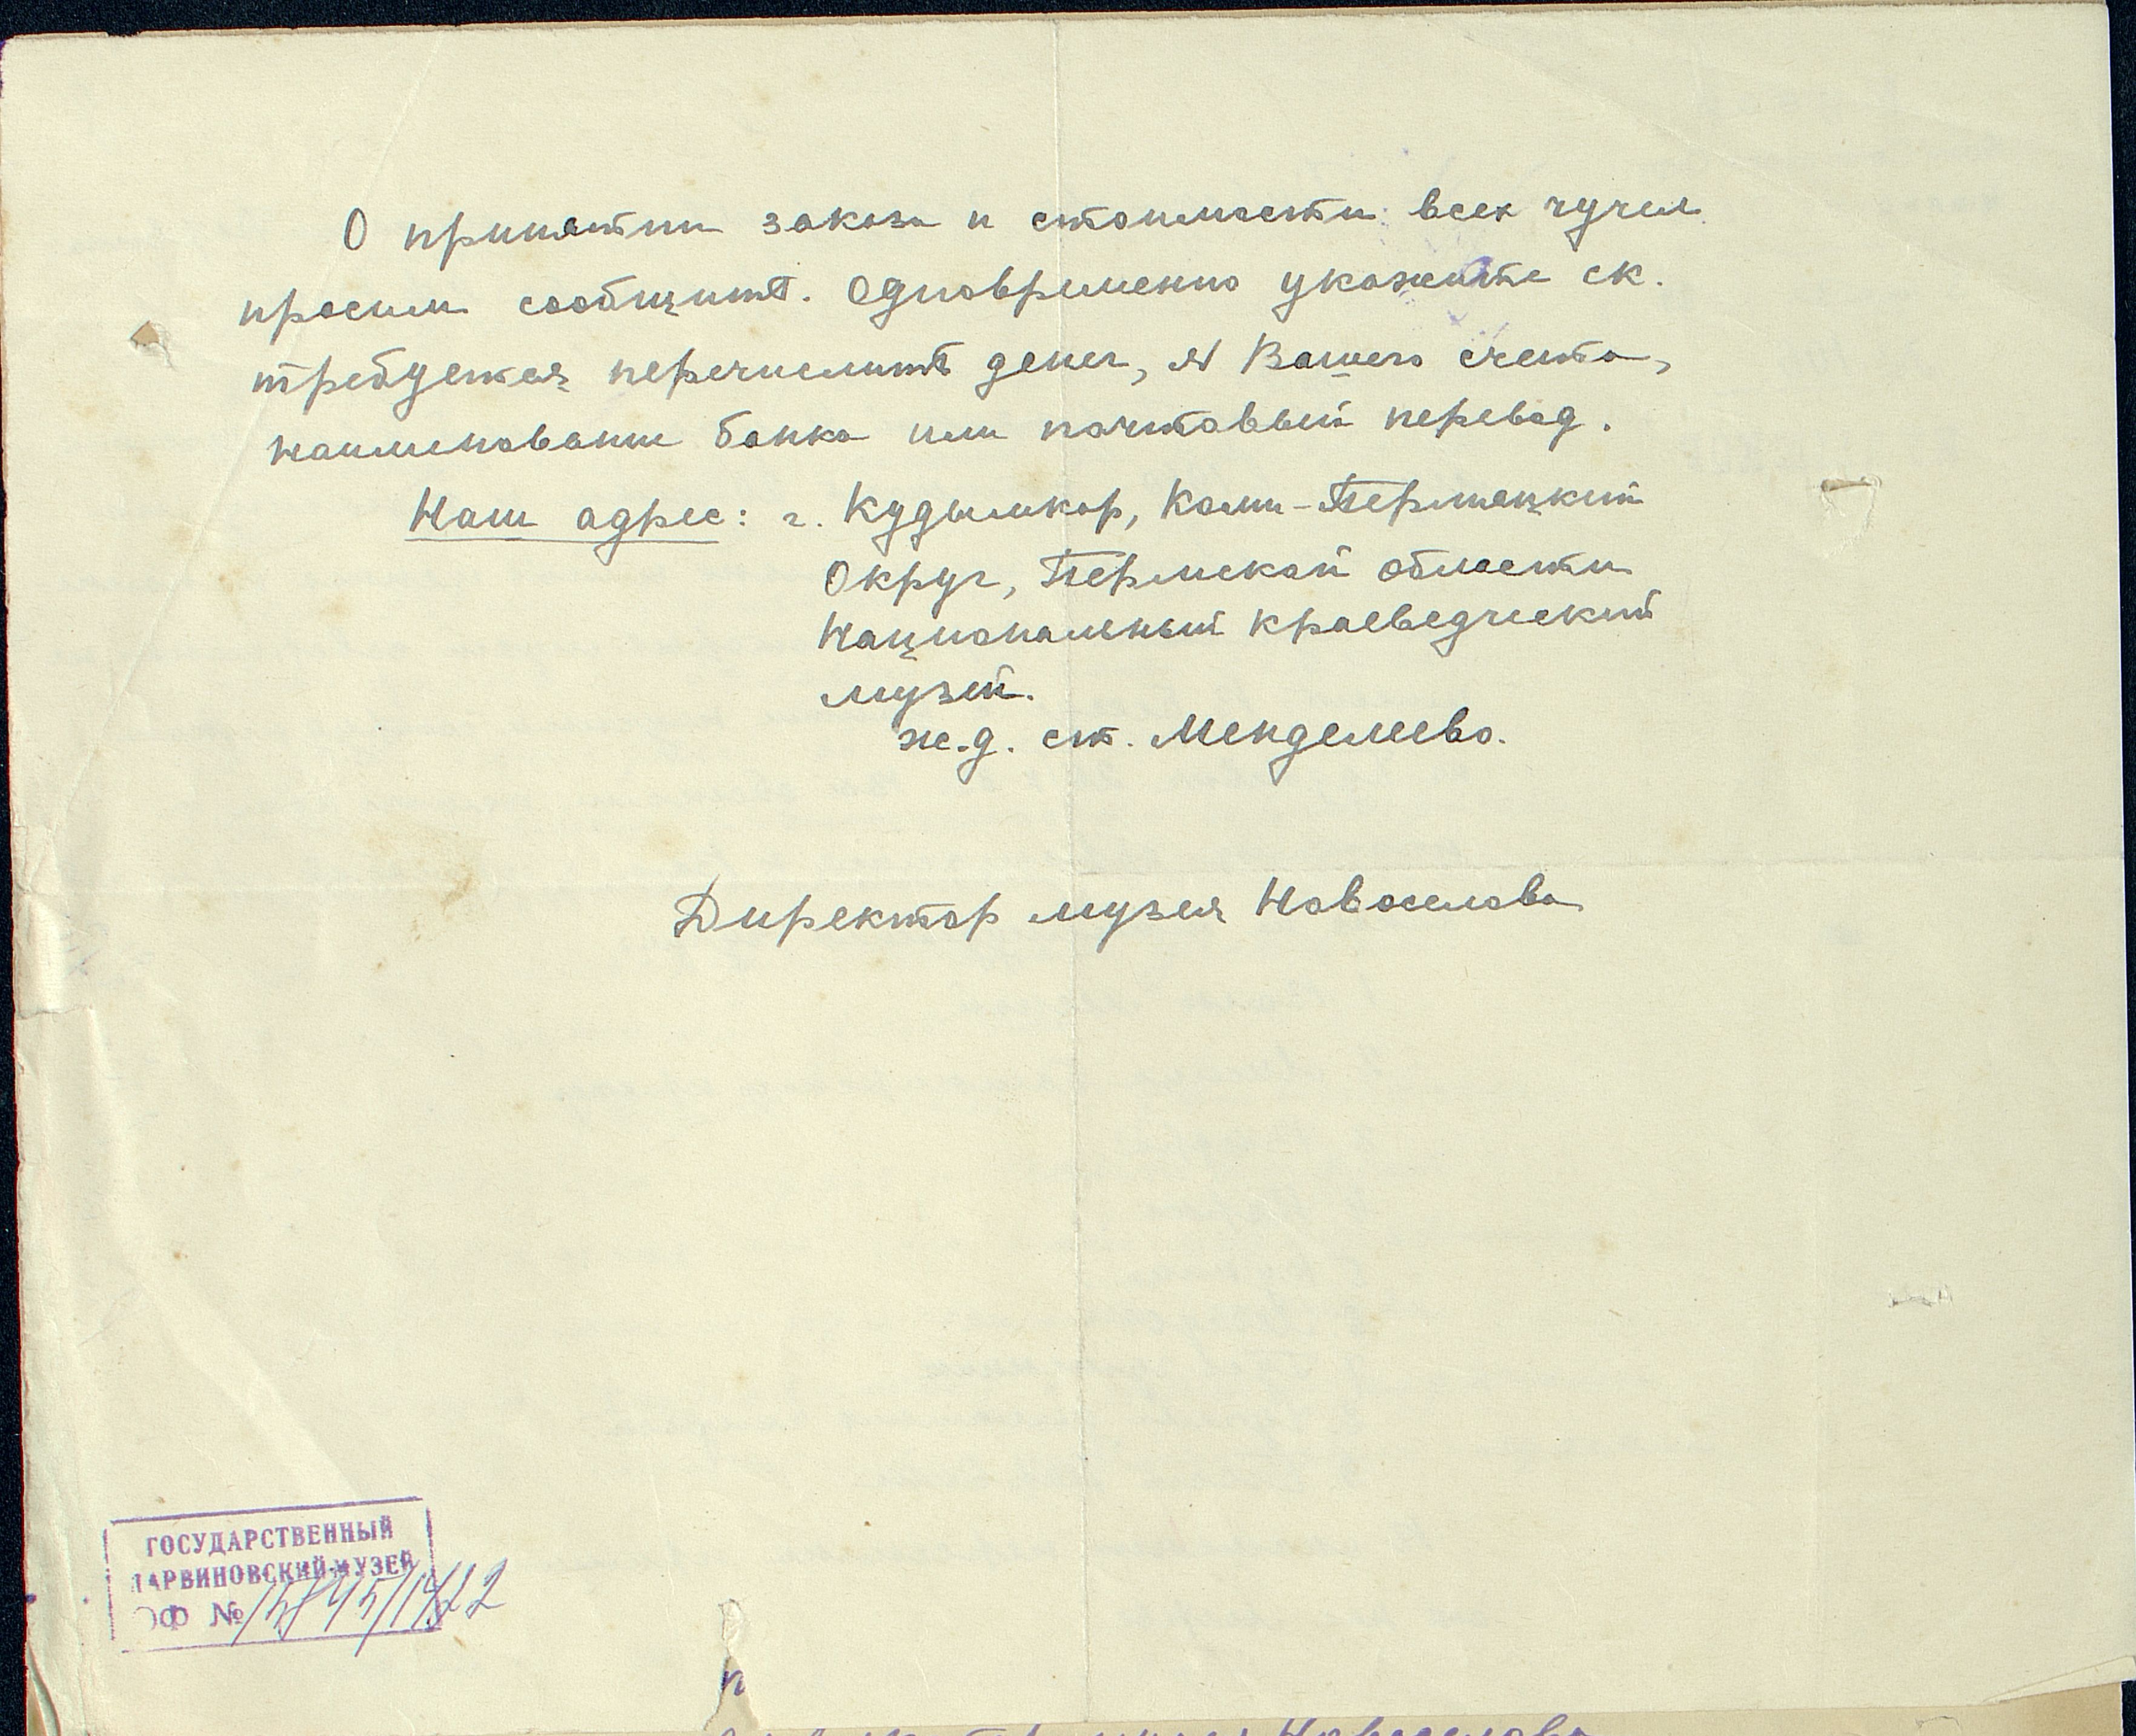 О принятии заказа и стоимости всех чучел
просим сообщить. Одновременно укажите ск.
требуется перечислить денег, № Вашего счета,
наименование банка или почтовый перевод.
Наш адрес: г. Кудымкор, Коми-Пермяцкий
Округ, Пермской области
Национальный краеведческий
музей.
ж.д. ст. Менделеево.
Директор музея Новоселова
ГОСУДАРСТВЕННЫЙ
ДАРВИНОВСКИЙ МУЗЕЙ
ОФ №